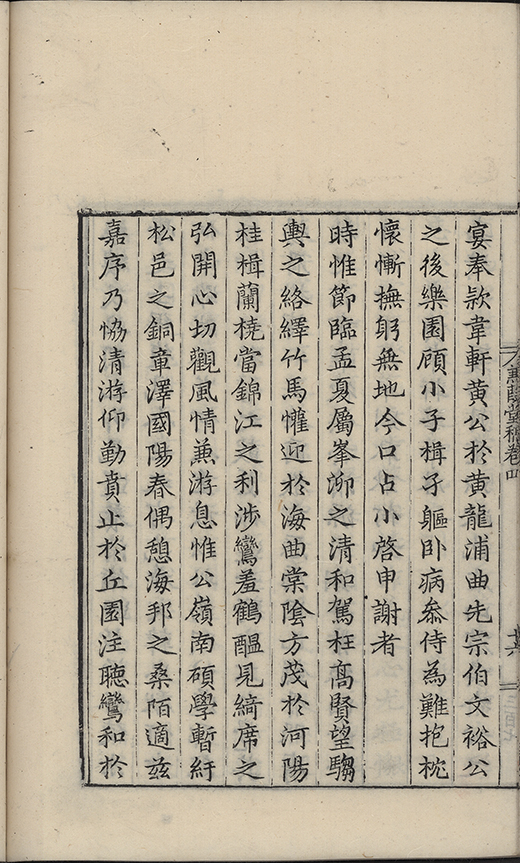 蒹葭堂稿卷四
宴奉款葦軒黃公於黃龍浦曲先宗伯文裕公
之後樂園顧小子楫孑軀卧病叅侍為難抱枕
懷慚撫躬無地今口占小啓申謝者
時惟節臨孟夏屬峯泖之清和駕枉高賢望騶
輿之絡繹竹馬懽迎於海曲棠陰方茂於河陽
桂楫蘭橈當錦江之利涉鸞羞鶴醞見綺席之
弘開心切觀風情兼游息惟公嶺南碩學暫紆
松邑之銅章澤國陽春偶憩海邦之桑陌適兹
嘉序乃恊清游仰勤賁止於丘園注聽鸞和於